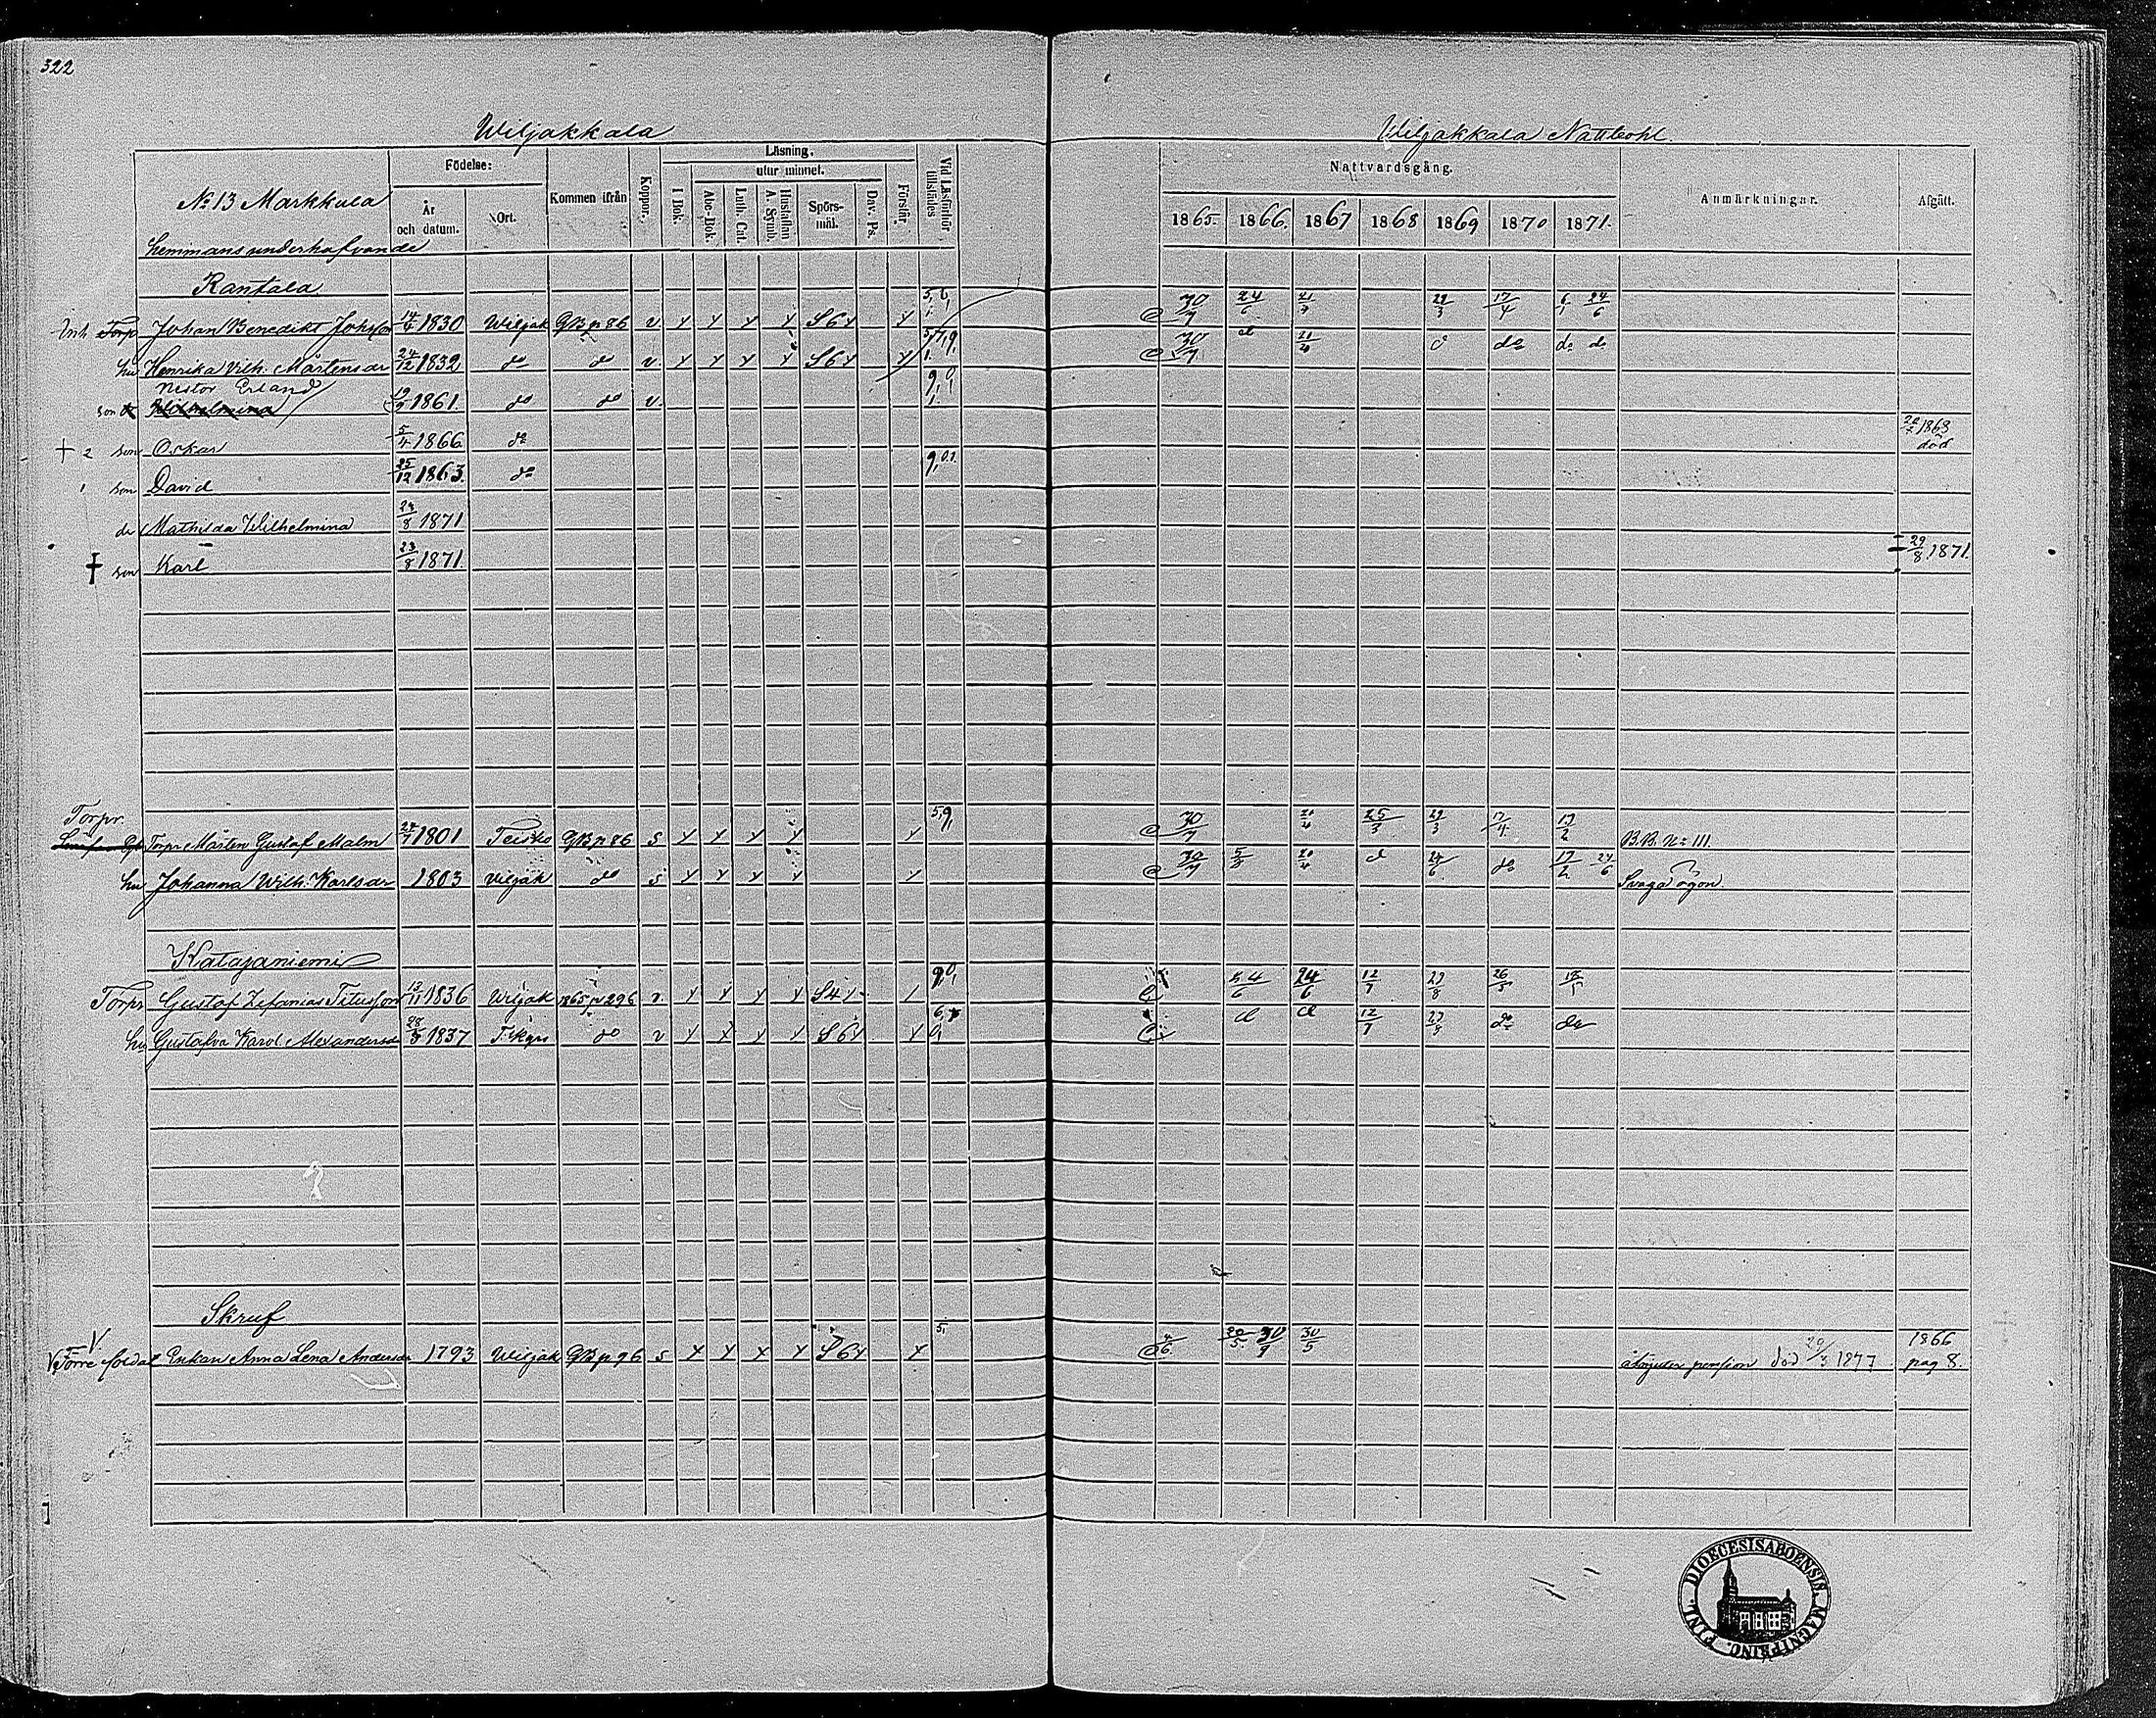 322
Wiljakkala
Wiljakkala Nattbohl.
No 13 Markkula
Födelse:
År och datum.
Ort.
Kommen ifrån
Koppor.
Läsning.
I Bok.
utur minnet.
Abc-Bok.
Luth. Cat.
Hustaflan A. Symb.
Spörs-mål.
Dav. Ps.
Förstår.
Vid Läsförhör tillstädes
Nattvardsgång.
1865. 1866. 1867 1868 1869 1870 1871.
Anmärkningar.
Afgått.
hemmans underhafvande
Rantala
Inh Torp Johan Benedikt Johsson 14/4 1830 Wiljak GB p 86 v y y y y S 6 y y 30/9 24/6 21/4 29/3 17/4 6/1 24/6
hu Henrika Vilh. Mårtensdr 24/12 1832 do do v. y y y y S 6 y y 30/9 d 21/4 d do do do
Nestor Erland
son Wilhelmina 19/9 1861. do do v.
+ 2 son Oskar 5/4 1866 do 1868 död
1 son David 25/12 1863. do
dr Mathilda Wilhelmina 23/8 1871
† son Karl 23/8 1871. 29/8 1871.
Torpr.
Torpr Mårten Gustaf Malm 24/7 1801 Teisko GB p 86 s y y y y y 5,9, 30/9 21/4 25/3 29/3 17/4 19/2 B.B. No 111.
hu Johanna Wilh. Karlsdr 1803 Viljak do s y y y y y 30/9 5/8 21/4 d 24/6 do 17/2 24/6 Svaga ögon.
Katajaniemi
Torpr Gustaf Zefanias Titusson 13/11 1836 Wiljak 1865 p 296 v. y y y y S 4 y 24/6 24/6 12/7 29/8 26/5
hu Gustafva Karol. Alexandersdr 28/3 1837 T:kyro do v y y y y S 6 y y d d 12/7 29/8 do do
Skruf
Förre soldat Enkan Anna Lena Andersdr 1793 Wiljak GB p 96 s y y y y S 6 y y 5, 20/5 30/9 30/5 åtnjuter pension död 20/3 1877 1866 pag 8.
DIOECESIS ABOENSIS. MAGNI PRINC. FINL.